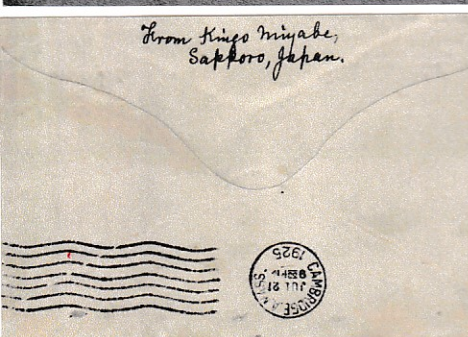 From Kingo Miyabe,
Sapporo, Japan.
CAMBRIDGE A MASS.
JUL 21
9
1925